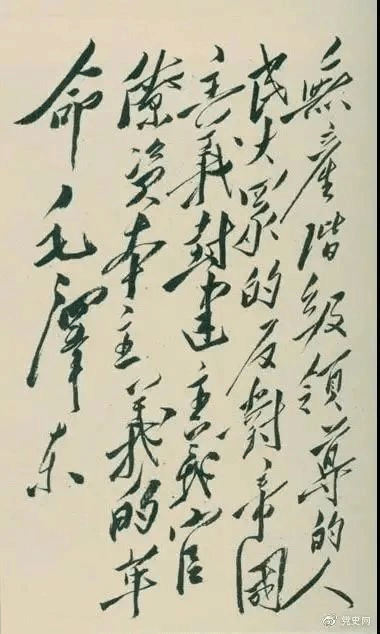 無產階級領導的人
民大眾的反對帝國
主義封建主義官
僚資本主義的革
命 毛澤东
党史网